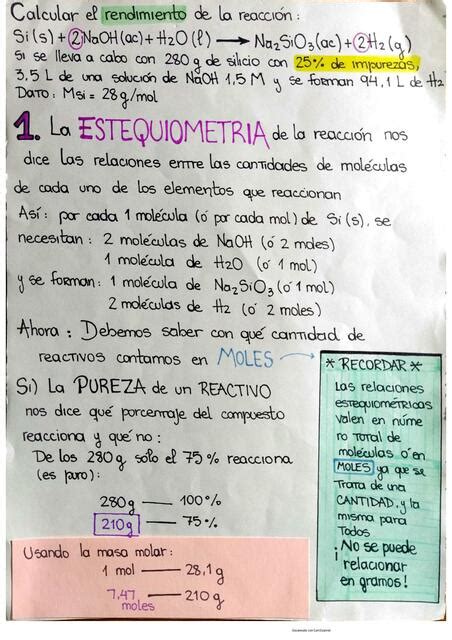 Calcular el rendimiento de la reacción:
Si(s) + 2NaOH(ac) + H2O(l) → Na2SiO3(ac) + 2H2(g)
si se lleva a cabo con 280g de silicio con 25% de impurezas,
3,5 L de una solución de NaOH 1,5 M y se forman 94,1 L de H2
DATO: Msi = 28g/mol
1. La ESTEQUIOMETRIA de la reacción nos
dice las relaciones entre las cantidades de moléculas
de cada uno de los elementos que reaccionan
Así: por cada 1 molécula (ó por cada mol) de Si(s), se
necesitan: 2 moléculas de NaOH (ó 2 moles)
1 molécula de H2O (ó 1 mol)
y se forman: 1 molécula de Na2SiO3 (ó 1 mol)
2 moléculas de H2 (ó 2 moles)
Ahora: Debemos saber con qué cantidad de
reactivos contamos en MOLES
Si) La PUREZA de un REACTIVO
nos dice qué porcentaje del compuesto
reacciona y qué no:
De los 280g solo el 75% reacciona
(es puro):
280g — 100%
210g — 75%
Usando la masa molar:
1 mol — 28,1g
7,47 moles — 210g
* RECORDAR *
Las relaciones
estequiométricas
valen en núme
ro total de
moléculas ó en
MOLES ya que se
trata de una
CANTIDAD, y la
misma para
todos
¡No se puede
relacionar
en gramos!
Escaneado con CamScanner